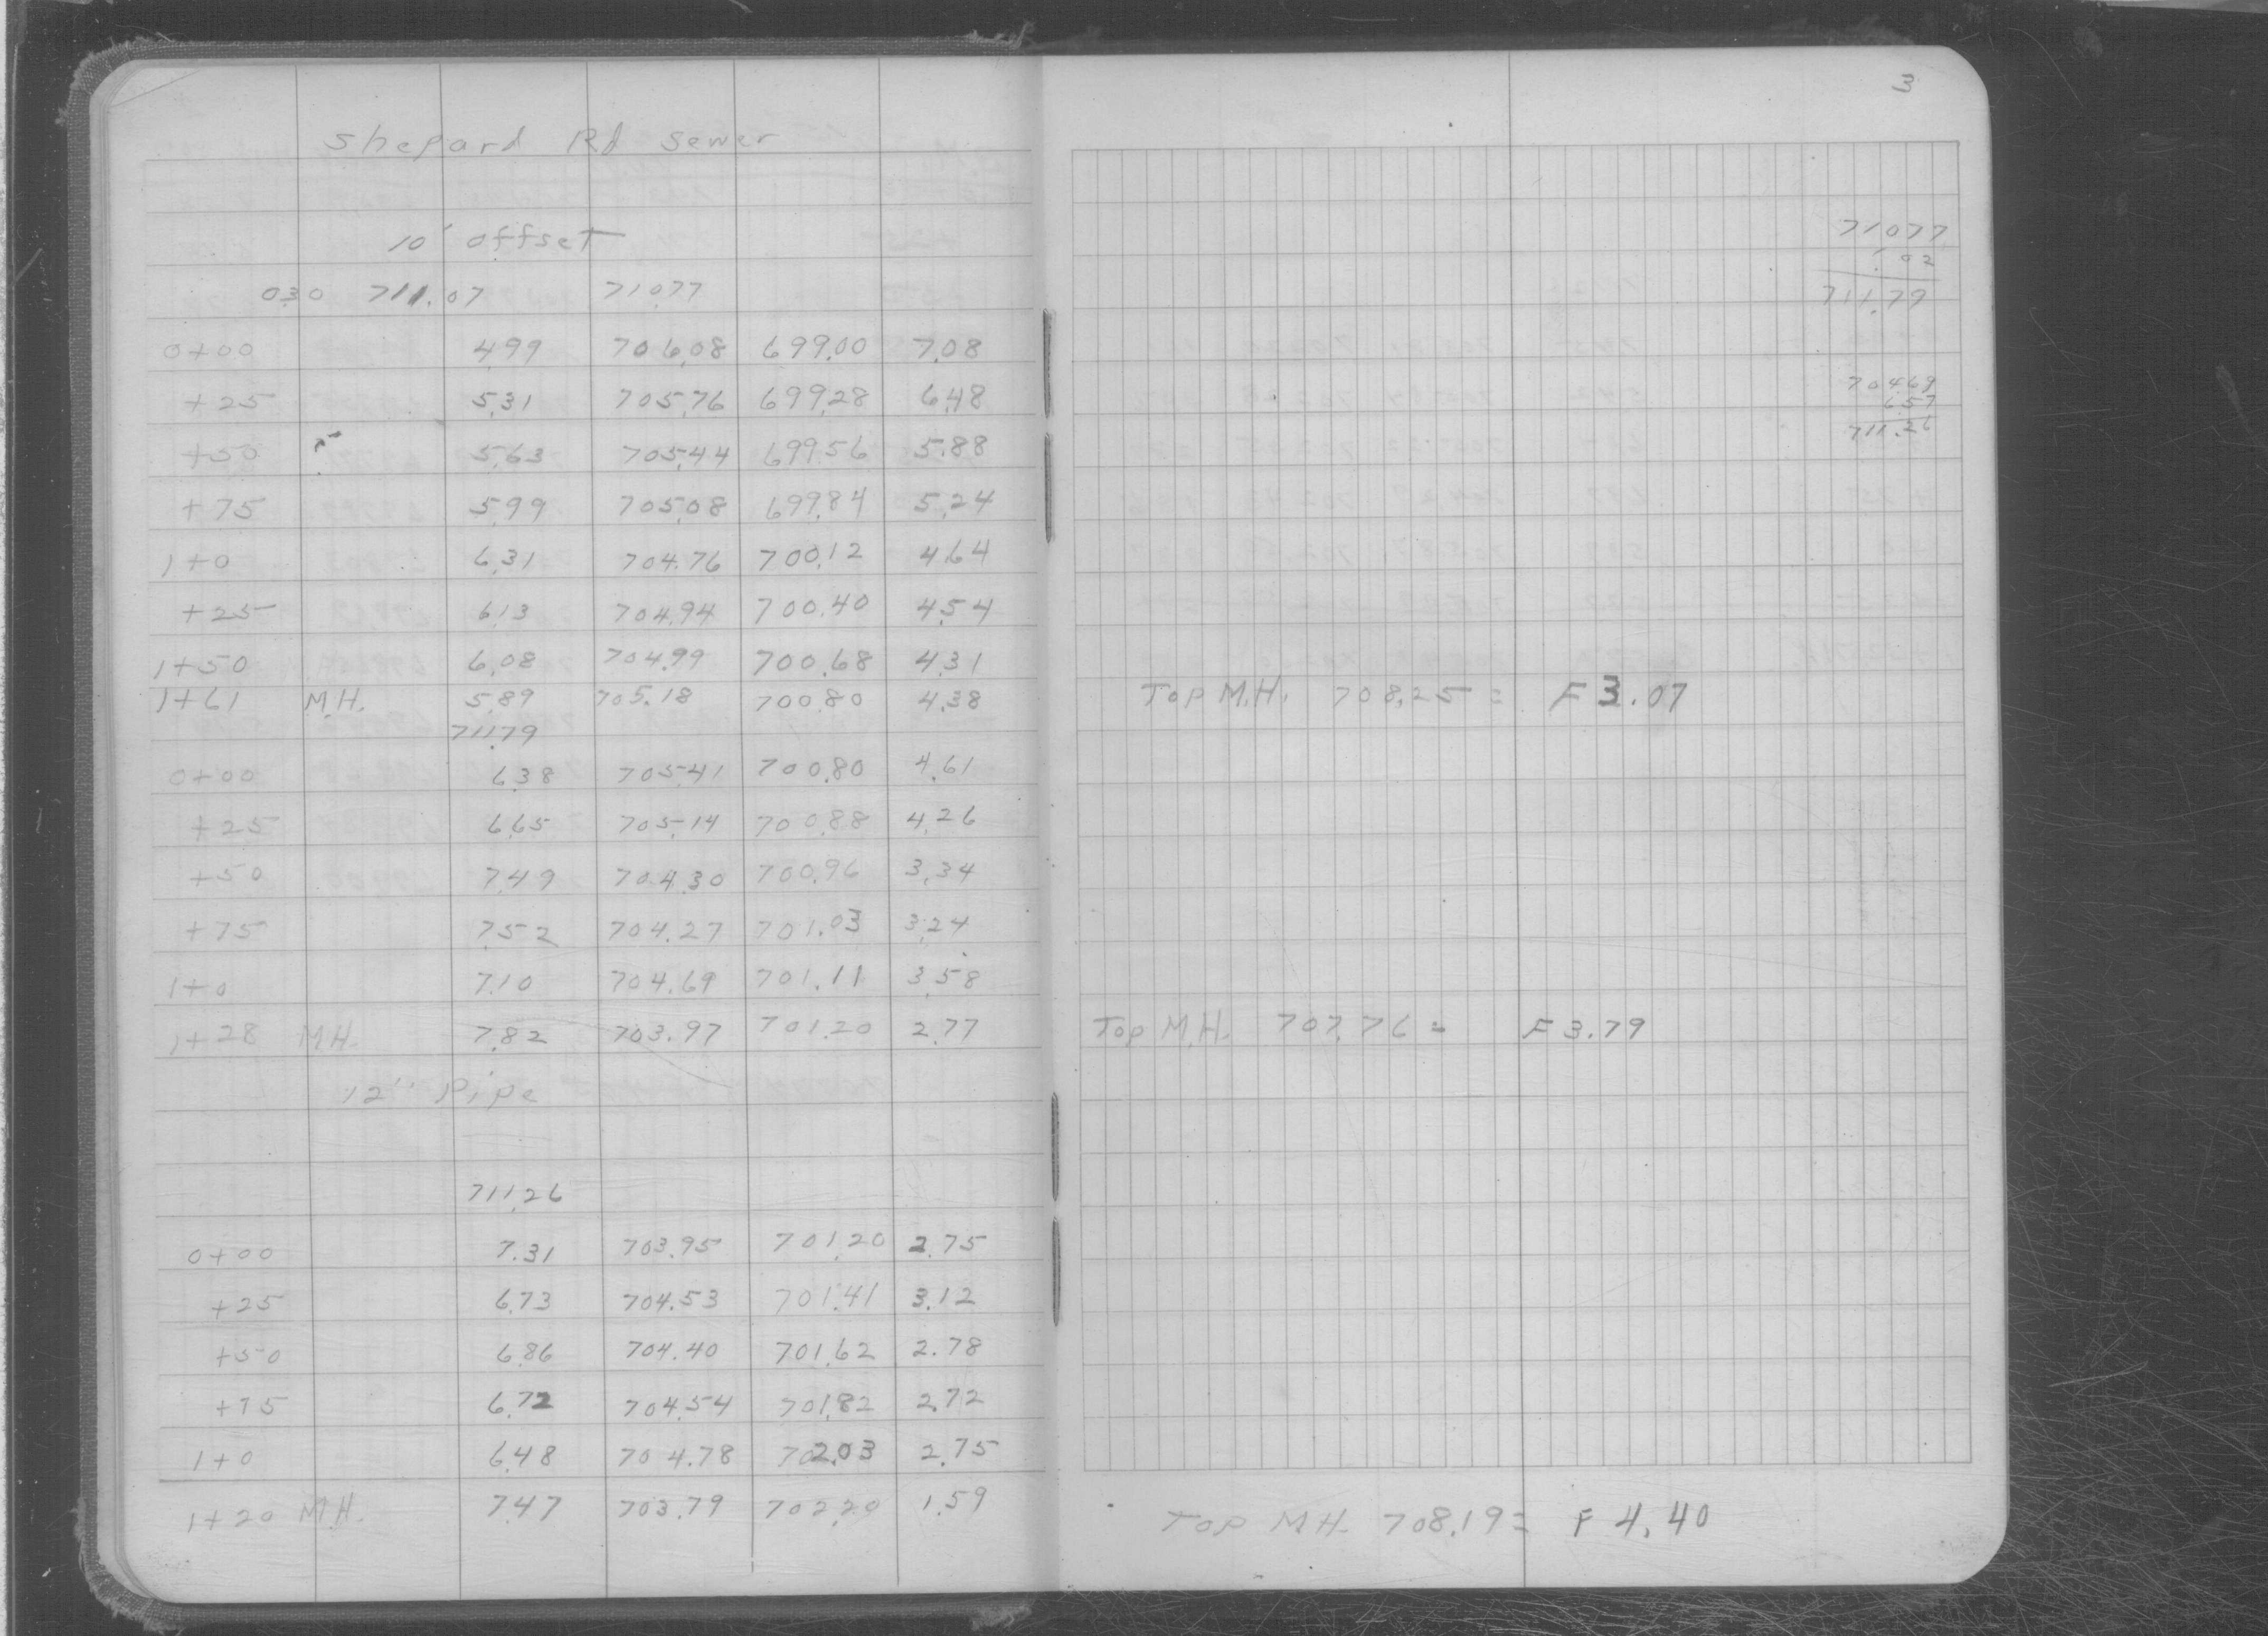 Shepard Rd Sewer
10' offset
0.30 711.07 710.77
0+00 4.99 706.08 699.00 7.08
+25 5.31 705.76 699.28 6.48
+50 5.63 705.44 699.56 5.88
+75 5.99 705.08 699.84 5.24
1+0 6.31 704.76 700.12 4.64
+25 6.13 704.94 700.40 4.54
1+50 6.08 704.99 700.68 4.31
1+61 M.H. 5.89 705.18 700.80 4.38
711.79
0+00 6.38 705.41 700.80 4.61
+25 6.65 705.14 700.88 4.26
+50 7.49 704.30 700.96 3.34
+75 7.52 704.27 701.03 3.24
1+0 7.10 704.69 701.11 3.58
1+28 M.H. 7.82 703.97 701.20 2.77
12" Pipe
711.26
0+00 7.31 703.95 701.20 2.75
+25 6.73 704.53 701.41 3.12
+50 6.86 704.40 701.62 2.78
+75 6.72 704.54 701.82 2.72
1+0 6.48 704.78 702.03 2.75
1+20 M.H. 7.47 703.79 702.20 1.59
3
710.77
1.02
711.79
704.69
6.57
711.26
Top M.H. 708.25 = F 3.07
Top M.H. 707.76 = F 3.79
Top M.H. 708.19 = F 4.40